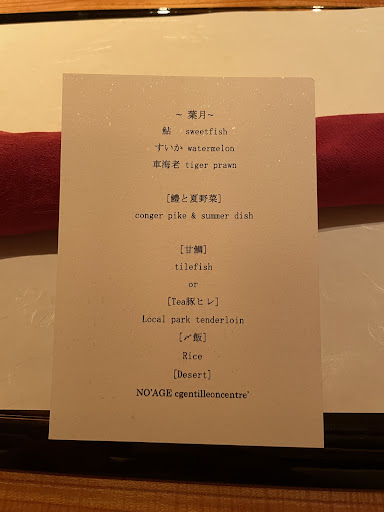 ~ 葉月~
鮎 sweetfish
すいか watermelon
車海老 tiger prawn
[鱧と夏野菜]
conger pike & summer dish
[甘鯛]
tilefish
or
[Tea豚ヒレ]
Local park tenderloin
[〆飯]
Rice
[Desert]
NO'AGE cgentilleoncentre'